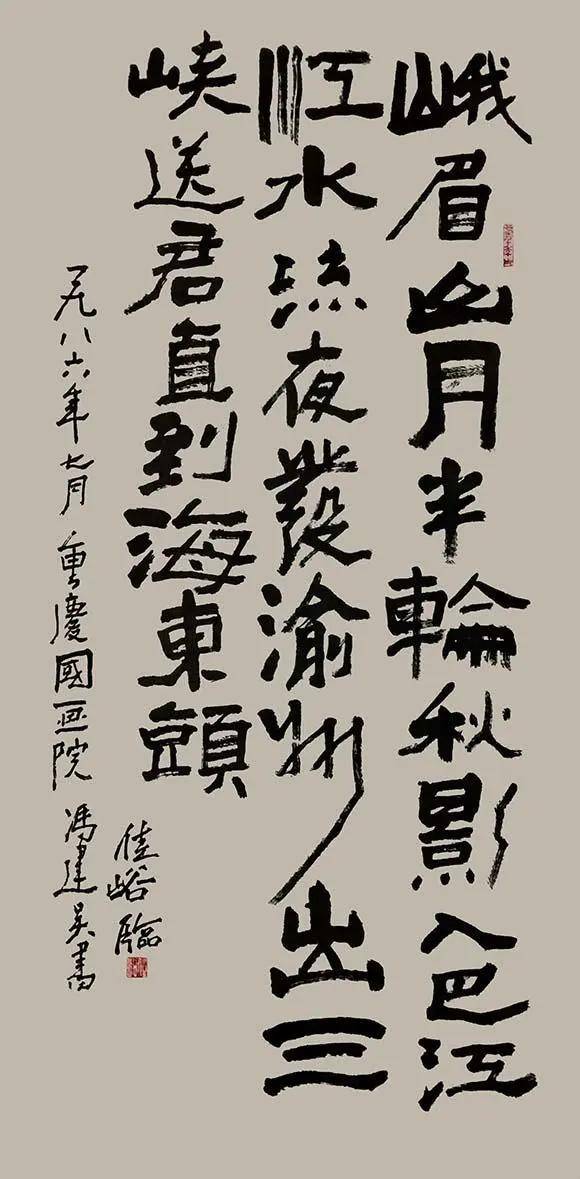 峨眉山月半輪秋影入巴江
江水流夜發渝州出三
峽送君直到海東頭
一九八六年七月重慶國画院馮建吴書
佳峪臨